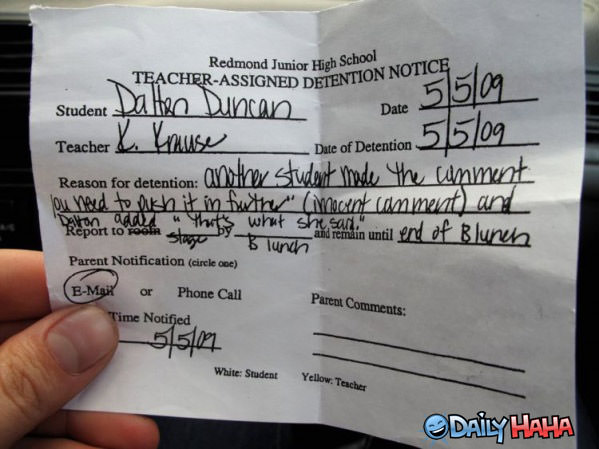 Redmond Junior High School
TEACHER-ASSIGNED DETENTION NOTICE
Student Dalton Duncan Date 5/5/09
Teacher K. Krause Date of Detention 5/5/09
Reason for detention: another student made the comment
"you need to push it in further" (innocent comment) and
Dalton added "that's what she said."
Report to room stage by B lunch and remain until end of B lunch
Parent Notification (circle one)
E-Mail or Phone Call Parent Comments:
Time Notified
5/5/09
White: Student Yellow: Teacher
DAILY HAHA